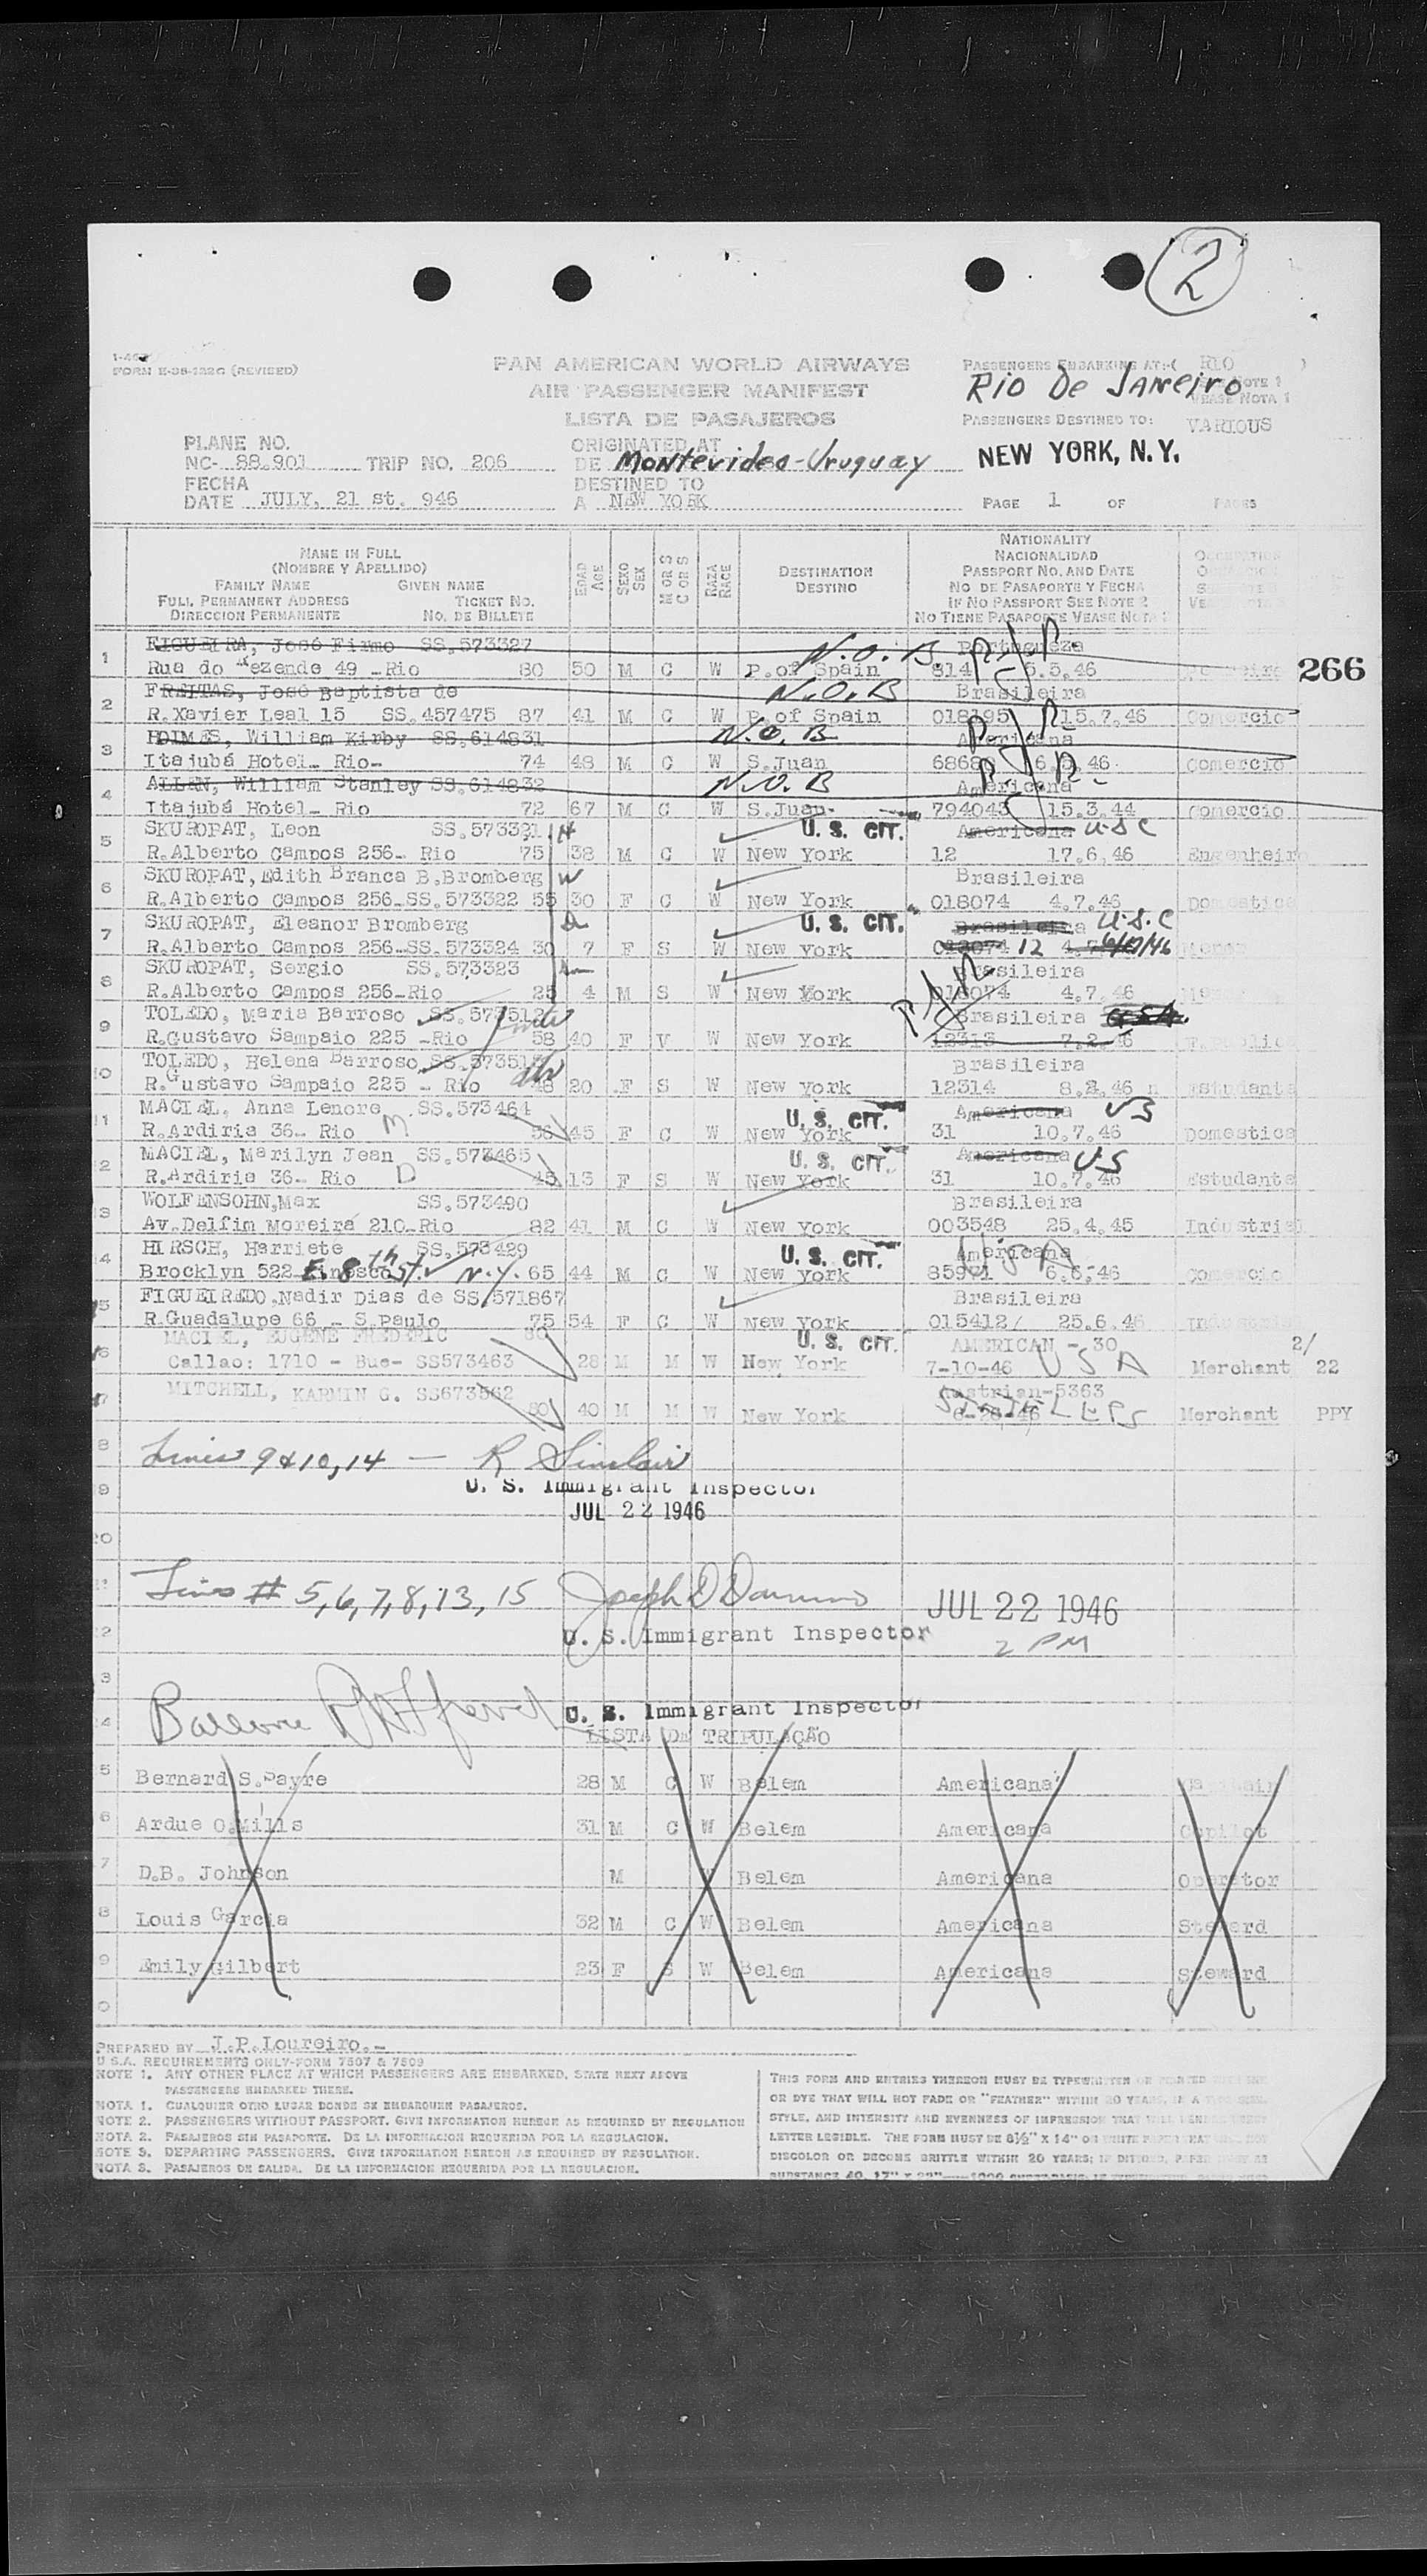 2
FORM E-38-122G (REVISED)
PAN AMERICAN WORLD AIRWAYS
AIR PASSENGER MANIFEST
LISTA DE PASAJEROS
PASSENGERS EMBARKING AT:-( RIO )
Rio De Janeiro
SEE NOTE 1
VEASE NOTA 1
PASSENGERS DESTINED TO: VARIOUS
NEW YORK, N.Y.
PLANE NO.
NC- 88.901 TRIP NO. 206
ORIGINATED AT
DE Montevideo-Uruguay
FECHA
DATE JULY, 21 st. 946
DESTINED TO
A NEW YORK
PAGE 1 OF PAGES
NAME IN FULL
(NOMBRE Y APELLIDO)
FAMILY NAME GIVEN NAME
FULL PERMANENT ADDRESS TICKET NO.
DIRECCION PERMANENTE NO. DE BILLETE
EDAD AGE
SEXO SEX
M OR S C OR S
RAZA RACE
DESTINATION
DESTINO
NATIONALITY
NACIONALIDAD
PASSPORT NO. AND DATE
NO DE PASAPORTE Y FECHA
IF NO PASSPORT SEE NOTE 2
NO TIENE PASAPORTE VEASE NOTA 2
OCCUPATION
266
1 FIGUEIRA, José Firmo SS.573327 N.O.B. Portugueza
Rua do Rezende 49 -Rio 80 50 M C W P.of Spain 814 5.5.46
2 FREITAS, José Baptista de N.O.B Brasileira
R.Xavier Leal 15 SS.457475 87 41 M C W P.of Spain 018195 15.7.46 Comercio
3 HOIMES, William Kirby SS.614831 N.O.B Americana
Itajubá Hotel- Rio- 74 48 M C W S.Juan 6868 46 Comercio
4 ALLEN, William Stanley SS.614832 N.O.B Americana
Itajubá Hotel- Rio 72 67 M C W S.Juan 794043 15.3.44 Comercio
5 SKUROPAT, Leon SS.573321 H U. S. CIT. Americana USC
R.Alberto Campos 256- Rio 75 38 M C W New York 12 17.6.46 Engenheiro
6 SKUROPAT,Edith Branca B.Bromberg W Brasileira
R.Alberto Campos 256-SS.573322 55 30 F C W New York 018074 4.7.46 Domestica
7 SKUROPAT, Eleanor Bromberg D U. S. CIT. Brasileira U.S.C
R.Alberto Campos 256-SS.573324 30 7 F S W New York 018074 12
8 SKUROPAT, Sergio SS.573323 Brasileira
R.Alberto Campos 256-Rio 25 4 M S W New York 018074 4.7.46
9 TOLEDO, Maria Barroso Brasileira
R.Gustavo Sampaio 225 -Rio 58 40 F V W New York 12313 7.2.46
10 TOLEDO, Helena Barroso Brasileira
R.Gustavo Sampaio 225 - Rio 48 20 F S W New York 12314 8.2.46 Estudante
11 MACIEL, Anna Lenore SS.573464 U. S. CIT. Americana US
R.Ardiria 36- Rio M 56 45 F C W New York 31 10.7.46 Domestica
12 MACIEL, Marilyn Jean SS.573465 U. S. CIT. Americana US
R.Ardiria 36- Rio D 45 13 F S W New York 31 10.7.46 Estudante
13 WOLFENSOHN,Max SS.573490 Brasileira
Av.Delfim Moreira 210-Rio 82 41 M C W New York 003548 25.4.45 Industrial
14 HIRSCH, Harriete SS.573429 U. S. CIT. Americana USA
Brocklyn 522 E. 8th St. N.Y. 65 44 M C W New York 6.6.46 Comercio
15 FIGUEIREDO,Nadir Dias de SS/571867 Brasileira
R.Guadalupe 66 - S.Paulo 75 54 F C W New York 015412/ 25.6.46 Industrial
16 MACIEL, EUGENE FREDERIC 80 U. S. CIT. AMERICAN - 30 2/
Callao: 1710 - Bue- SS573463 28 M M W New York 7-10-46 USA Merchant 22
17 MITCHELL, KARMIN G. SS673562 Austrian-5363
80 40 M M W New York 6-28-46 Merchant PPY
8 Lines 9 & 10, 14 — R Sinclair
9 U. S. Immigrant Inspector
JUL 22 1946
20
Lines # 5,6,7,8,13,15 Joseph D JUL 22 1946
U. S. Immigrant Inspector 2 PM
3
4 U. S. Immigrant Inspector
LISTA DE TRIPULAÇÃO
5 Bernard S.Payre 28 M C W Belem Americana
6 Ardue O.Mills 31 M C W Belem Americana Copilot
7 D.B. Johnson M W Belem Americana Operator
8 Louis Garcia 32 M C W Belem Americana Steward
9 Emily Gilbert 23 F S W Belem Americana Steward
0
PREPARED BY J.P.Loureiro.-
U.S.A. REQUIREMENTS ONLY-FORM 7507 & 7509
NOTE 1. ANY OTHER PLACE AT WHICH PASSENGERS ARE EMBARKED, STATE NEXT ABOVE
PASSENGERS EMBARKED THERE.
NOTA 1. CUALQUIER OTRO LUGAR DONDE SE EMBARQUEN PASAJEROS.
NOTE 2. PASSENGERS WITHOUT PASSPORT. GIVE INFORMATION HEREON AS REQUIRED BY REGULATION
NOTA 2. PASAJEROS SIN PASAPORTE. DE LA INFORMACION REQUERIDA POR LA REGULACION.
NOTE 3. DEPARTING PASSENGERS. GIVE INFORMATION HEREON AS REQUIRED BY REGULATION.
NOTA 3. PASAJEROS DE SALIDA. DE LA INFORMACION REQUERIDA POR LA REGULACION.
THIS FORM AND ENTRIES THEREON MUST BE TYPEWRITTEN OR PRINTED
OR DYE THAT WILL NOT FADE OR "FEATHER" WITHIN 20 YEARS, IN A
STYLE, AND INTENSITY AND EVENNESS OF IMPRESSION THAT WILL
LETTER LEGIBLE. THE FORM MUST BE 8½" X 14" ON WHITE PAPER THAT
DISCOLOR OR BECOME BRITTLE WITHIN 20 YEARS; IF DITTOED, PAPER